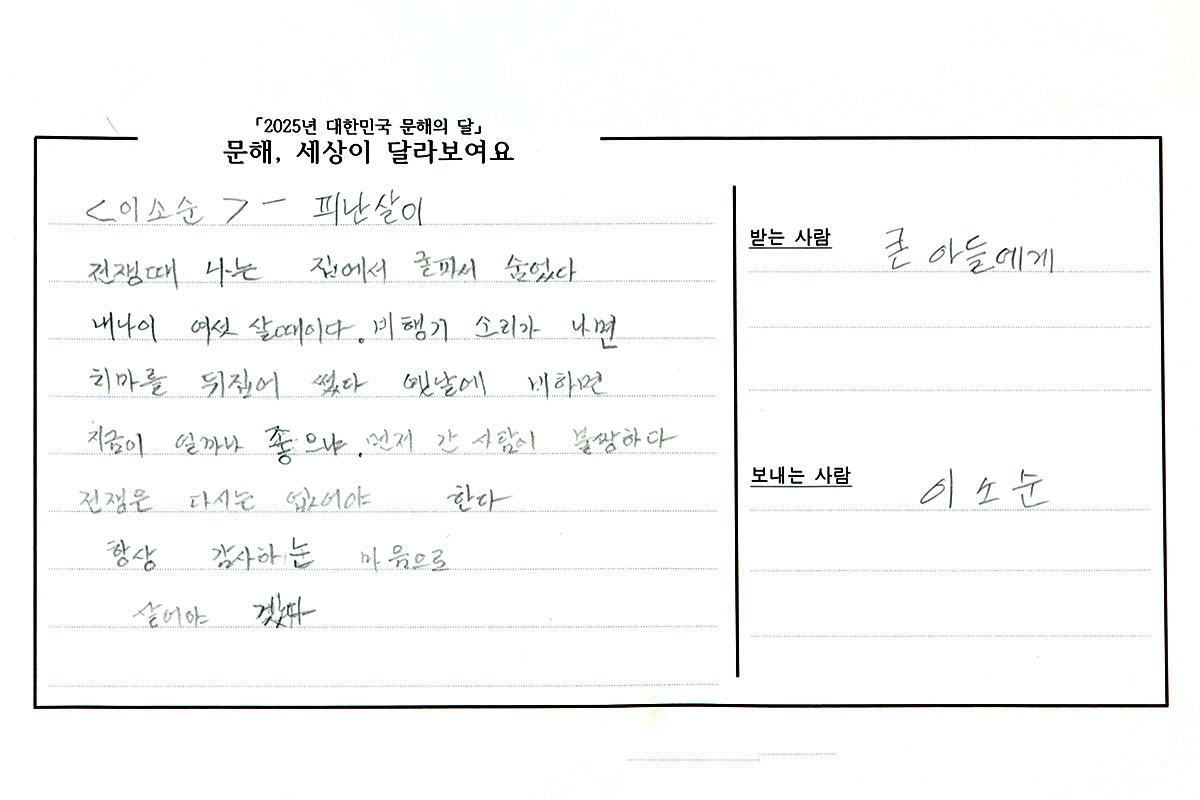 「2025년 대한민국 문해의 달」
문해, 세상이 달라보여요
<이소순> - 피난살이
전쟁때 나는 집에서 굴파서 숨었다
내나이 여섯 살때이다. 비행기 소리가 나면
치마를 뒤집어 썼다 옛날에 비하면
지금이 얼까나 좋으냐. 먼저 간 사람이 불쌍하다
전쟁은 다시는 없어야 한다
항상 감사하는 마음으로
살어야 겠따
받는 사람
큰 아들에게
보내는 사람
이소순